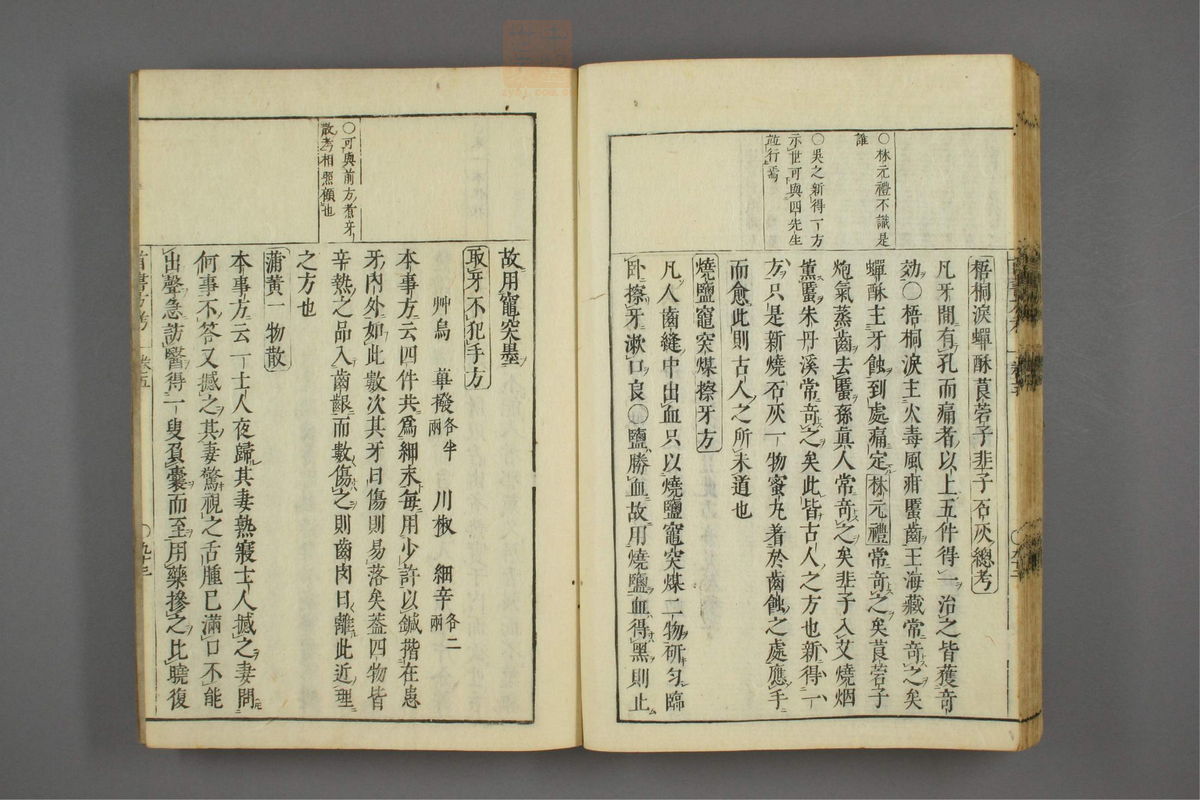 ○林元禮不識是
誰
○吳之新得一方
示世可與四先生
並行焉
梧桐淚蟬酥莨菪子韭子石灰總考
凡牙間有孔而痛者以上五件得一治之皆獲奇
効○梧桐淚主火毒風疳䘌齒王海藏常奇之矣
蟬酥主牙蝕到處痛定林元禮常奇之矣莨菪子
炮氣蒸齒去䘌孫真人常奇之矣韭子入艾燒烟
薰䘌朱丹溪常奇之矣此皆古人之方也新得一
方只是新燒石灰一物蜜丸著於齒蝕之處應手
而愈此則古人之所未道也
燒鹽竈突煤擦牙方
凡人齒縫中出血只以燒鹽竈突煤二物研勻臨
卧擦牙漱口良○鹽勝血故用燒鹽血得黑則止
○可與前方煮牙
散考相照顧也
故用竈突墨
取牙不犯手方
艸烏 蓽撥各半兩 川椒 細辛各二兩
本事方云四件共爲細末每用少許以鍼揩在患
牙內外如此數次其牙日傷則易落矣葢四物皆
辛熱之品入齒齦而數傷之則齒肉日離此近理
之方也
蒲黄一物散
本事方云一士人夜歸其妻熟寢士人撼之妻問
何事不答又撼之其妻驚視之舌腫已滿口不能
出聲急訪醫得一叟負囊而至用藥摻之比曉復